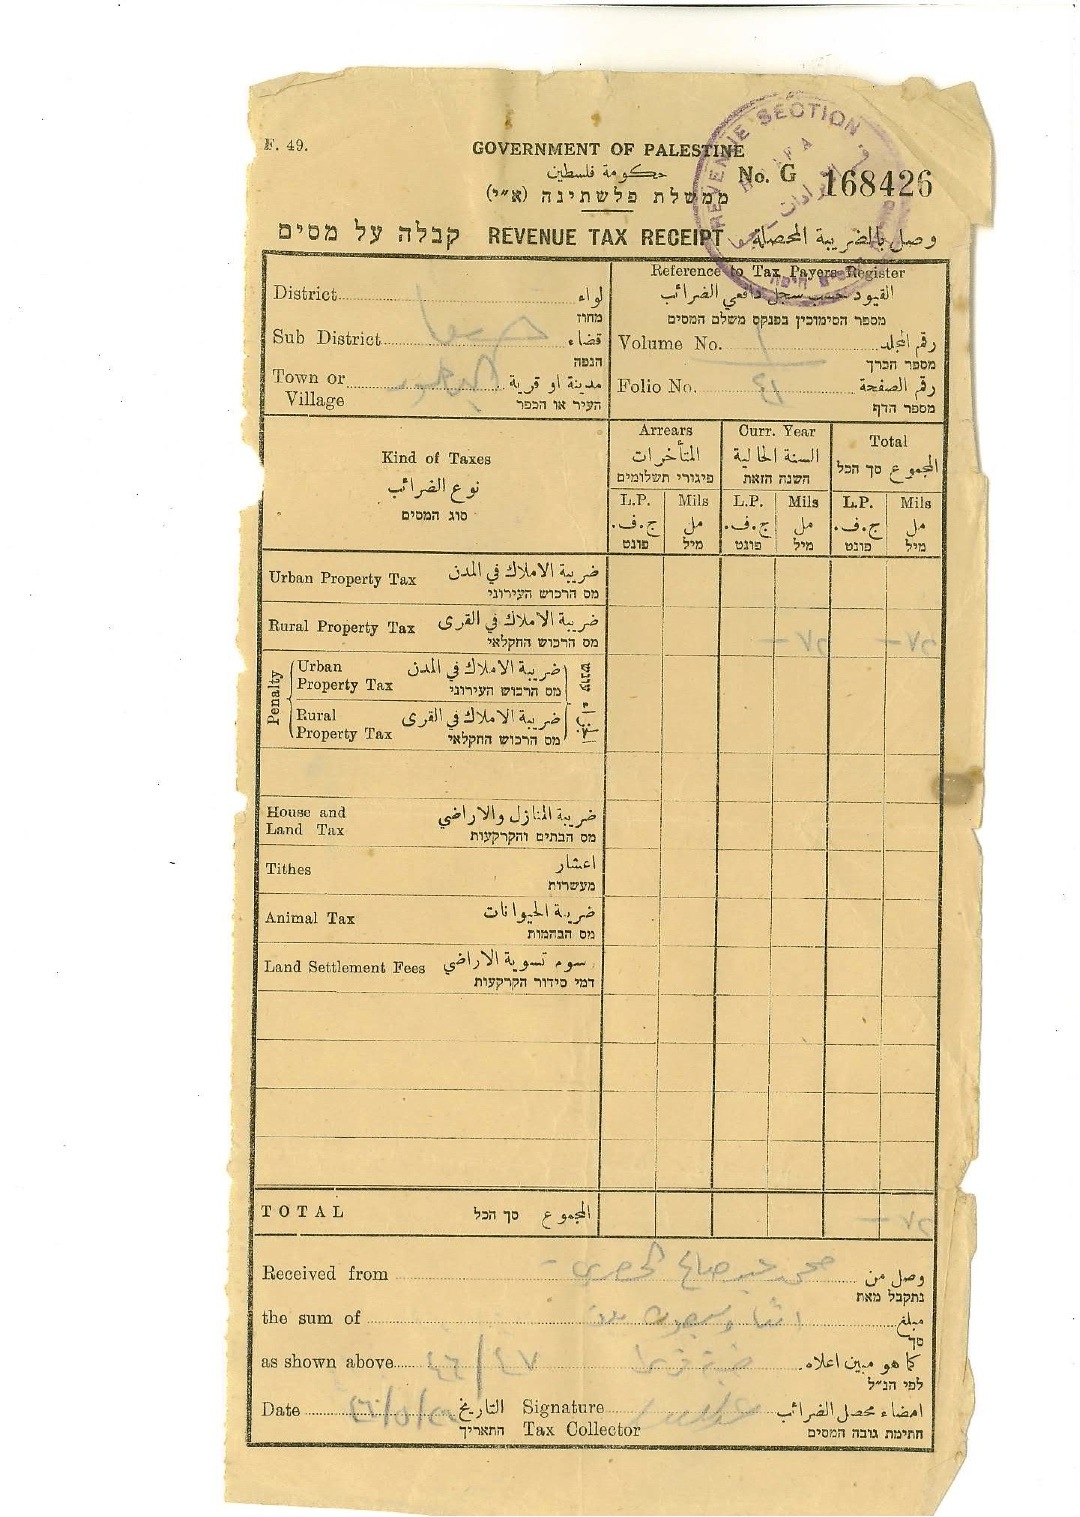 F. 49.
GOVERNMENT OF PALESTINE
حكومة فلسطين
ממשלת פלשתינה (א״י)
No. G 168426
REVENUE SECTION
HAIFA
קבלה על מסים REVENUE TAX RECEIPT وصل بالضريبة المحصلة
District لواء
מחוז
Sub District قضاء
הנפה
Town or Village مدينة او قرية
העיר או הכפר
Reference to Tax Payers Register
القيود حسب سجل دافعي الضرائب
מספר הסימוכין בפנקס משלם המסים
Volume No. ١ رقم المجلد
מספר הכרך
Folio No. ١٣ رقم الصفحة
מספר הדף
Kind of Taxes
نوع الضرائب
סוג המסים
Arrears
المتأخرات
פיגורי תשלומים
Curr. Year
السنة الحالية
השנה הזאת
Total
المجموع סך הכל
L.P. Mils L.P. Mils L.P. Mils
ج.ف. مل ج.ف. مل ج.ف. مل
פונט מיל פונט מיל פונט מיל
Urban Property Tax ضريبة الاملاك في المدن
מס הרכוש העירוני
Rural Property Tax ضريبة الاملاك في القرى
מס הרכוש החקלאי
Penalty
Urban Property Tax ضريبة الاملاك في المدن
מס הרכוש העירוני
עונש
Rural Property Tax ضريبة الاملاك في القرى
מס הרכוש החקלאי
House and Land Tax ضريبة المنازل والاراضي
מס הבתים והקרקעות
Tithes اعشار
מעשרות
Animal Tax ضريبة الحيوانات
מס הבהמות
Land Settlement Fees رسوم تسوية الاراضي
דמי סידור הקרקעות
TOTAL المجموع סך הכל
Received from وصل من
נתקבל מאת
the sum of مبلغ
סך
as shown above ٤٦/٤٧ كما هو مبين اعلاه.
לפי הנ״ל
Date التاريخ Signature امضاء محصل الضرائب
התאריך Tax Collector חתימת גובה המסים